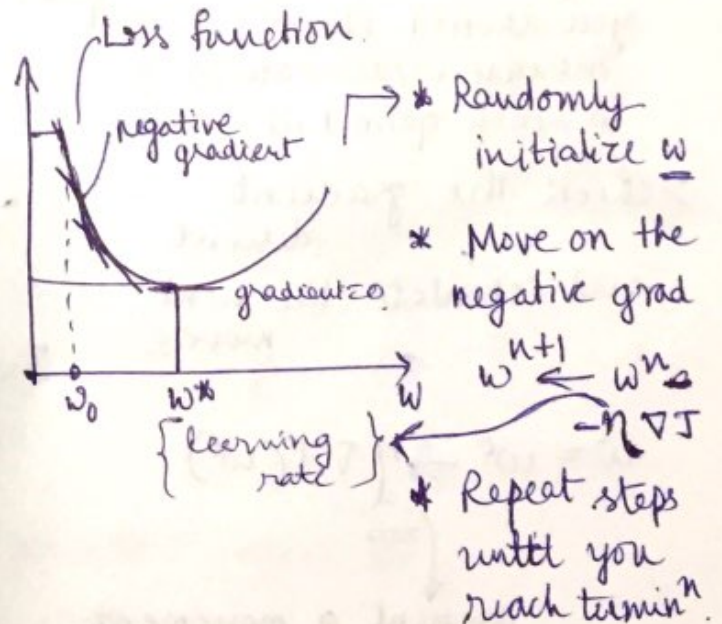 Loss function.
negative
gradient
gradient=0.
w₀
w*
w
{learning
rate}
* Randomly
initialize w
* Move on the
negative grad
wⁿ⁺¹ ← wⁿ
-η ∇J
* Repeat steps
until you
reach terminⁿ.